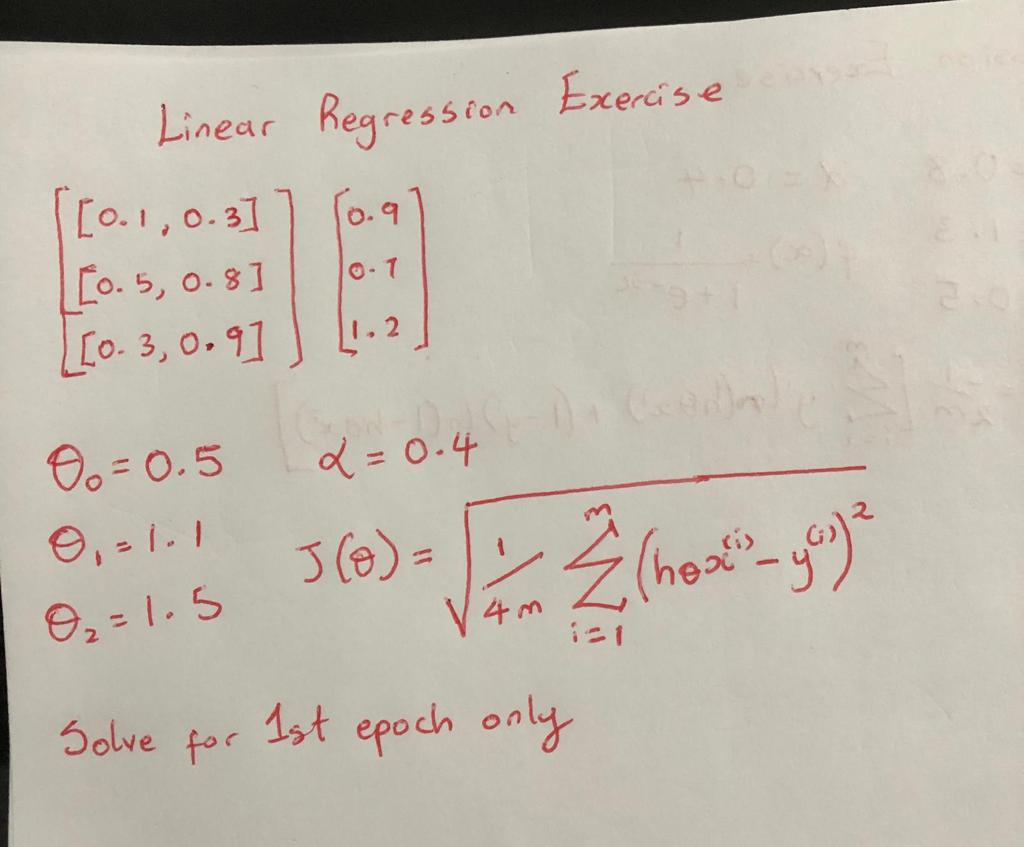 Linear Regression Exercise
[[0.1, 0.3]] [0.9]
[[0.5, 0.8]] [0.7]
[[0.3, 0.9]] [1.2]
θ₀ = 0.5 α = 0.4
θ₁ = 1.1 J(θ) = √(1/4m Σᵢ₌₁ᵐ (hθx⁽ⁱ⁾ − y⁽ⁱ⁾)²)
θ₂ = 1.5
Solve for 1st epoch only